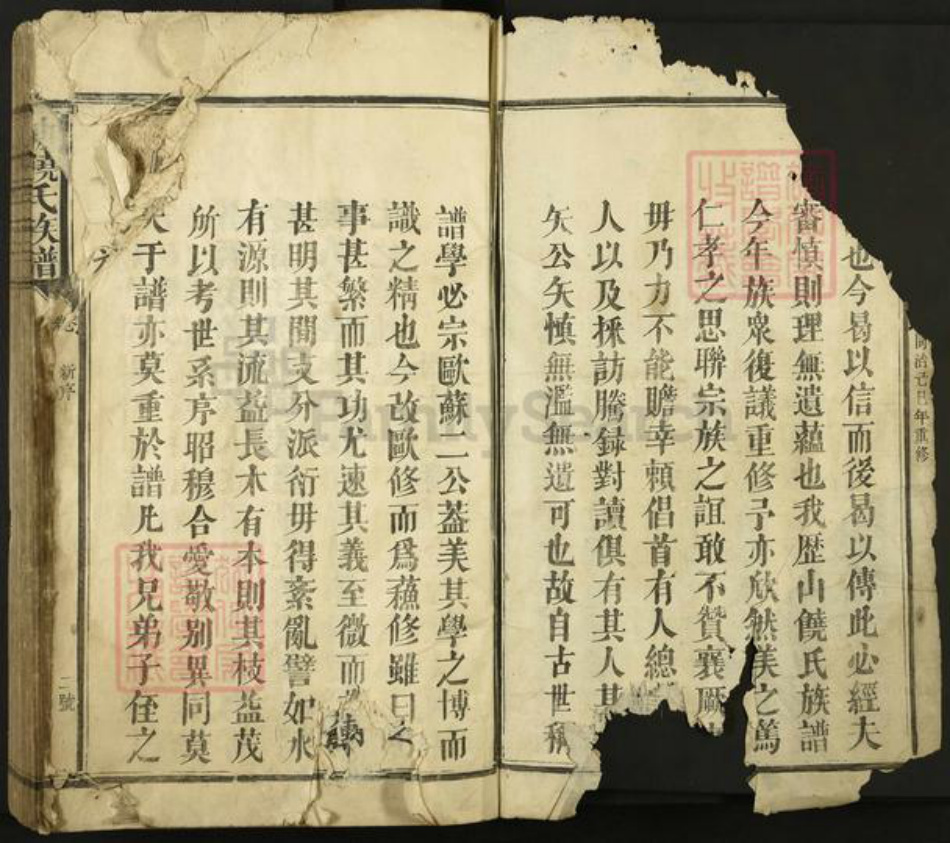 同治己巳年重修
也今曷以信而後曷以傳此必經夫
審慎則理無遺蘊也我歷山饒氏族譜
今年族眾復議重修予亦欣然美之篤
仁孝之思聯宗族之誼敢不贊襄厥
毋乃力不能贍幸賴倡首有人總
人以及採訪騰録對讀俱有其人其
矢公矢慎無濫無遺可也故自古世稱
譜學必宗歐蘇二公葢美其學之博而
識之精也今改歐修而為蘓修雖曰之
事甚繁而其功尤速其義至微而
甚明其間支分派衍毋得紊亂譬如水
有源則其流益長木有本則其枝益茂
所以考世系序昭穆合愛敬别異同莫
大于譜亦莫重於譜凡我兄弟子侄之
饒氏族譜
卷 新序
二號
FamilySearch